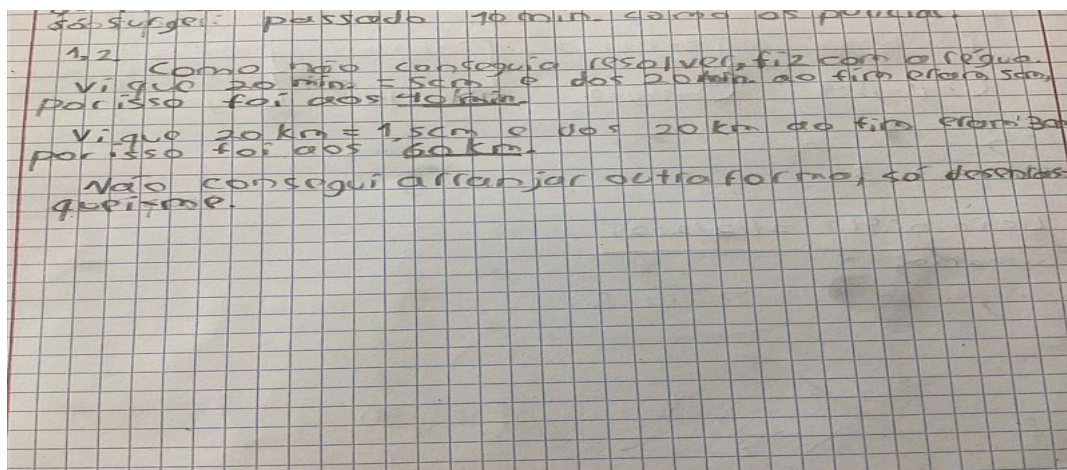 só surge passado 10 min. como os
1.2
Como não conseguia resolver, fiz com a régua.
Vi que 20 min = 5cm e dos 20 min ao fim eram 5cm,
por isso foi aos 40 min.
Vi que 20 km = 1,5cm e dos 20 km ao fim eram 3cm
por isso foi aos 60 km.
Não consegui arranjar outra forma, só desenras-
quei-me.